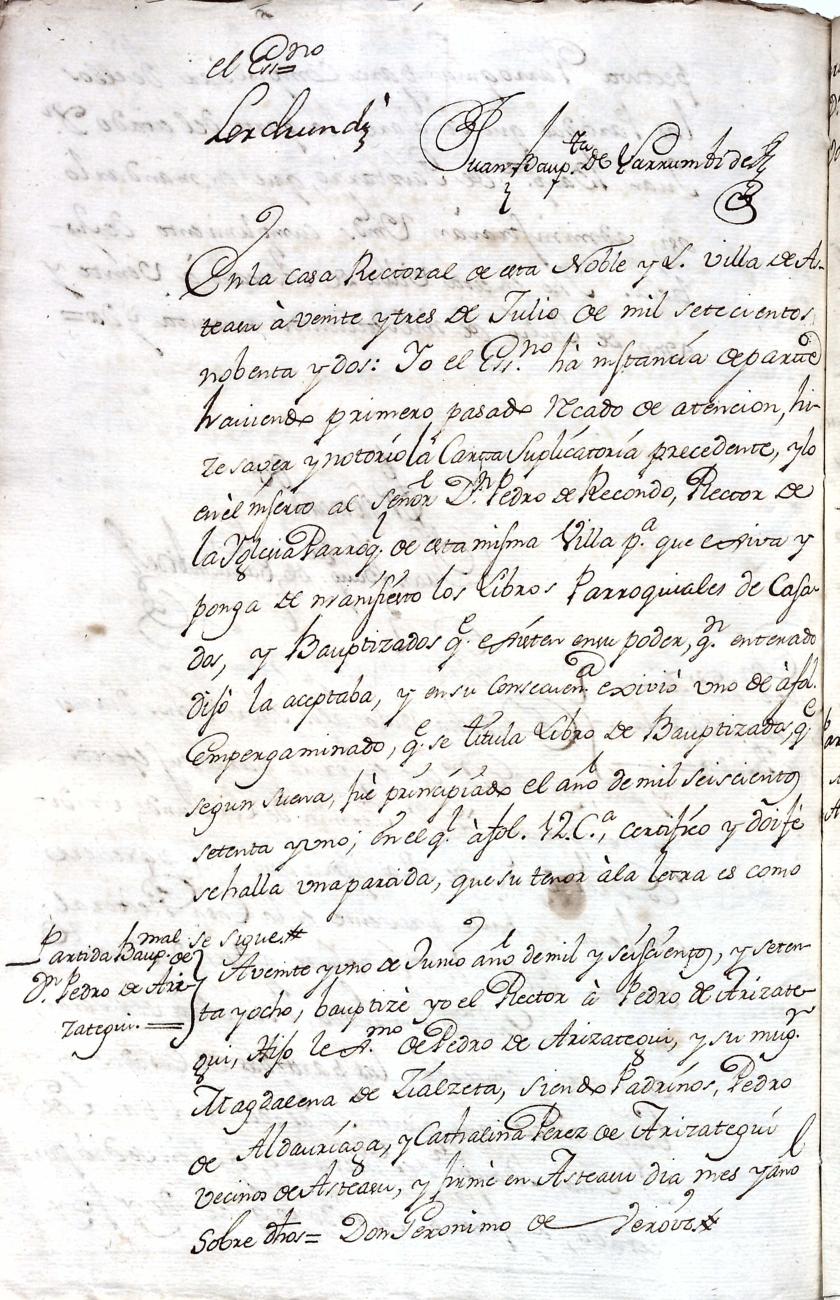 el Essno
Lerchundi
Juan Baupta. de Yarrumbide
En la casa Rectoral de esta Noble y L. villa de As-
teasu à veinte y tres de Julio de mil setecientos
nobenta y dos: Yo el Essno. hà instancia de parte
haviendo primero pasado Rcado de atencion, hi-
ze saver y notorio la Carta Suplicatoria precedente, y lo
en èl inserto al señor Dn. Pedro de Recondo, Rector de
la Yglesia Parroq.l de esta misma Villa pa. que exsiva y
ponga de manifiesto los Libros Parroquiales de Casa-
dos, y Bauptizados qe. existen en su poder, qn. enterado
dijo la aceptaba, y en su consecuena. exivio uno de à fol.
empergaminado, qe. se titula Libro de Bauptizados, qe.
segun suena, fuè principiado el año de mil seisciento
setenta y uno; en el ql. à fol. 12. Ca., certifico y doi fe
se halla una partida, que su tenor à la letra es como
se sigue #
Partida Baup.mal de
Dn. Pedro de Ari-
zategui.=
A veinte y uno de Junio año de mil y seisciento, y seten-
ta y ocho, bauptizè yo el Rector à Pedro de Arizate-
gui, Hijo le xmo. de Pedro de Arizategui, y su mugr.
Magdalena de Lialzeta, siendo Padrinos, Pedro
de Aldauriaga, y Cathalina Perez de Arizategui
vecinos de Asteasu, y firmè en Asteasu dia mes y año
Sobre dhos= Don Geronimo de